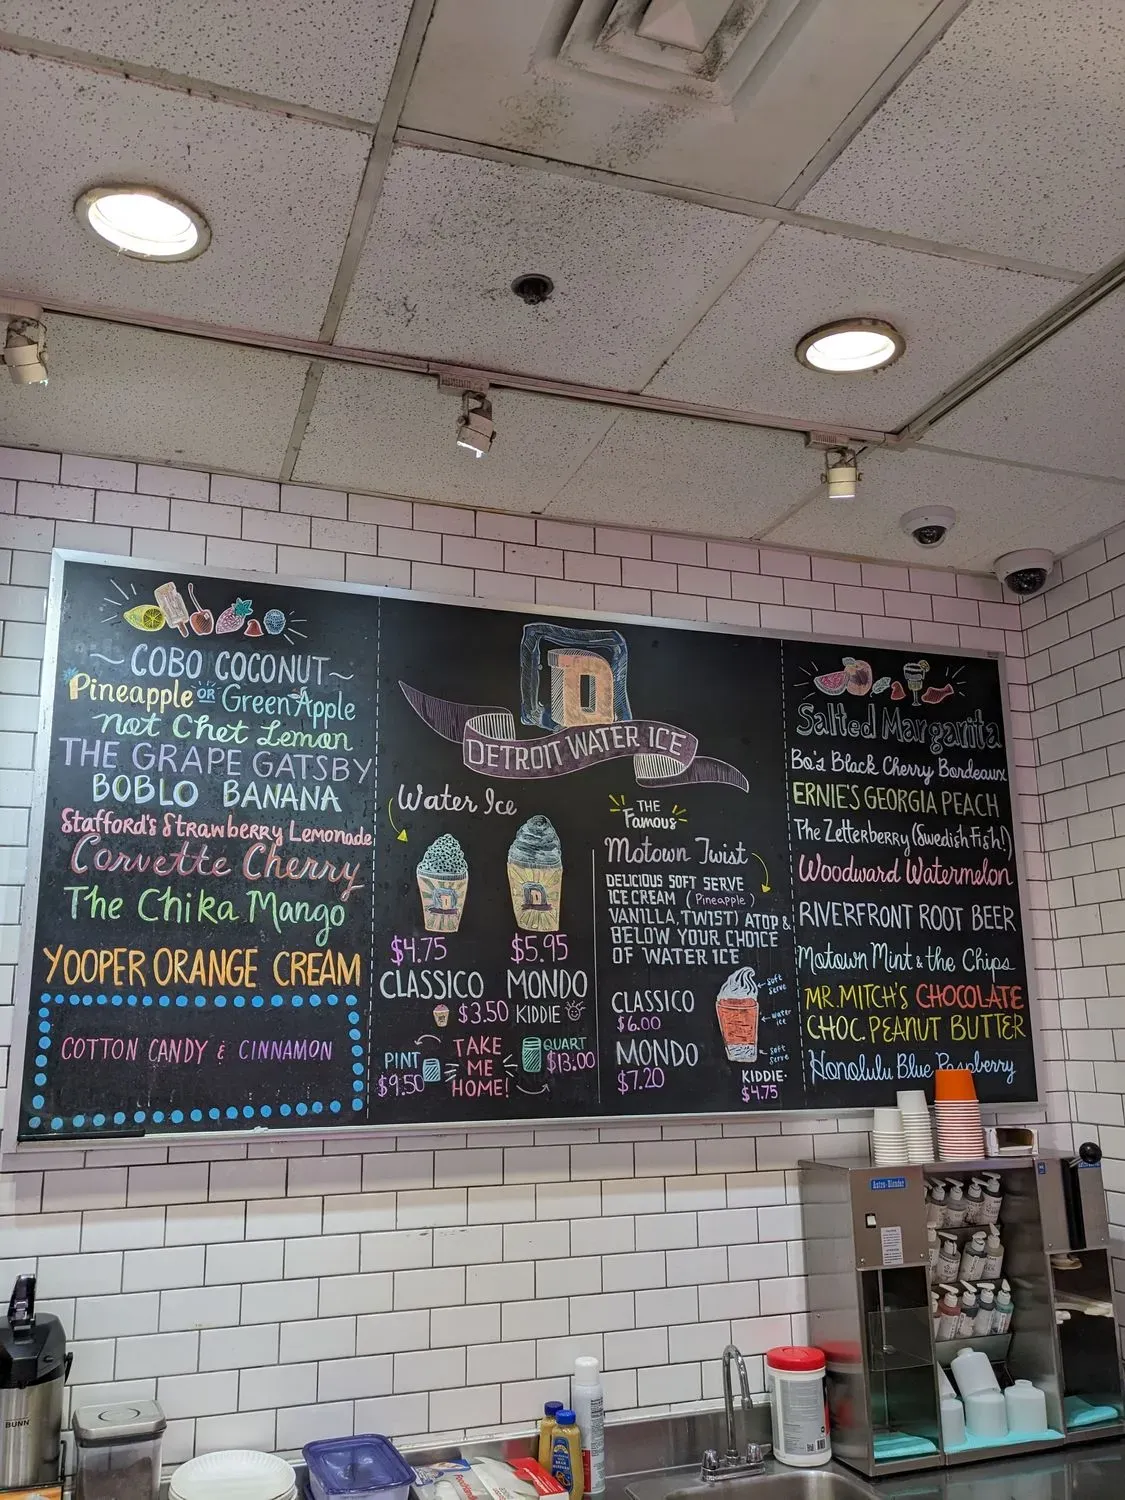 ~ COBO COCONUT ~
Pineapple OR Green Apple
Nat Chet Lemon
THE GRAPE GATSBY
BOBLO BANANA
Stafford's Strawberry Lemonade
Corvette Cherry
The Chika Mango
YOOPER ORANGE CREAM
COTTON CANDY & CINNAMON
D
DETROIT WATER ICE
Water Ice
$4.75
CLASSICO
$5.95
MONDO
$3.50 KIDDIE
PINT
$9.50
TAKE
ME
HOME!
QUART
$13.00
THE
Famous
Motown Twist
DELICIOUS SOFT SERVE
ICE CREAM (Pineapple)
VANILLA, TWIST) ATOP &
BELOW YOUR CHOICE
OF WATER ICE
CLASSICO
$6.00
MONDO
$7.20
soft
serve
water
ice
soft
serve
KIDDIE-
$4.75
Salted Margarita
Bo's Black Cherry Bordeaux
ERNIE'S GEORGIA PEACH
The Zetterberry (Swedish Fish!)
Woodward Watermelon
RIVERFRONT ROOT BEER
Motown Mint & the Chips
MR. MITCH'S CHOCOLATE
CHOC. PEANUT BUTTER
Honolulu Blue Raspberry
Astro-Blender
BUNN